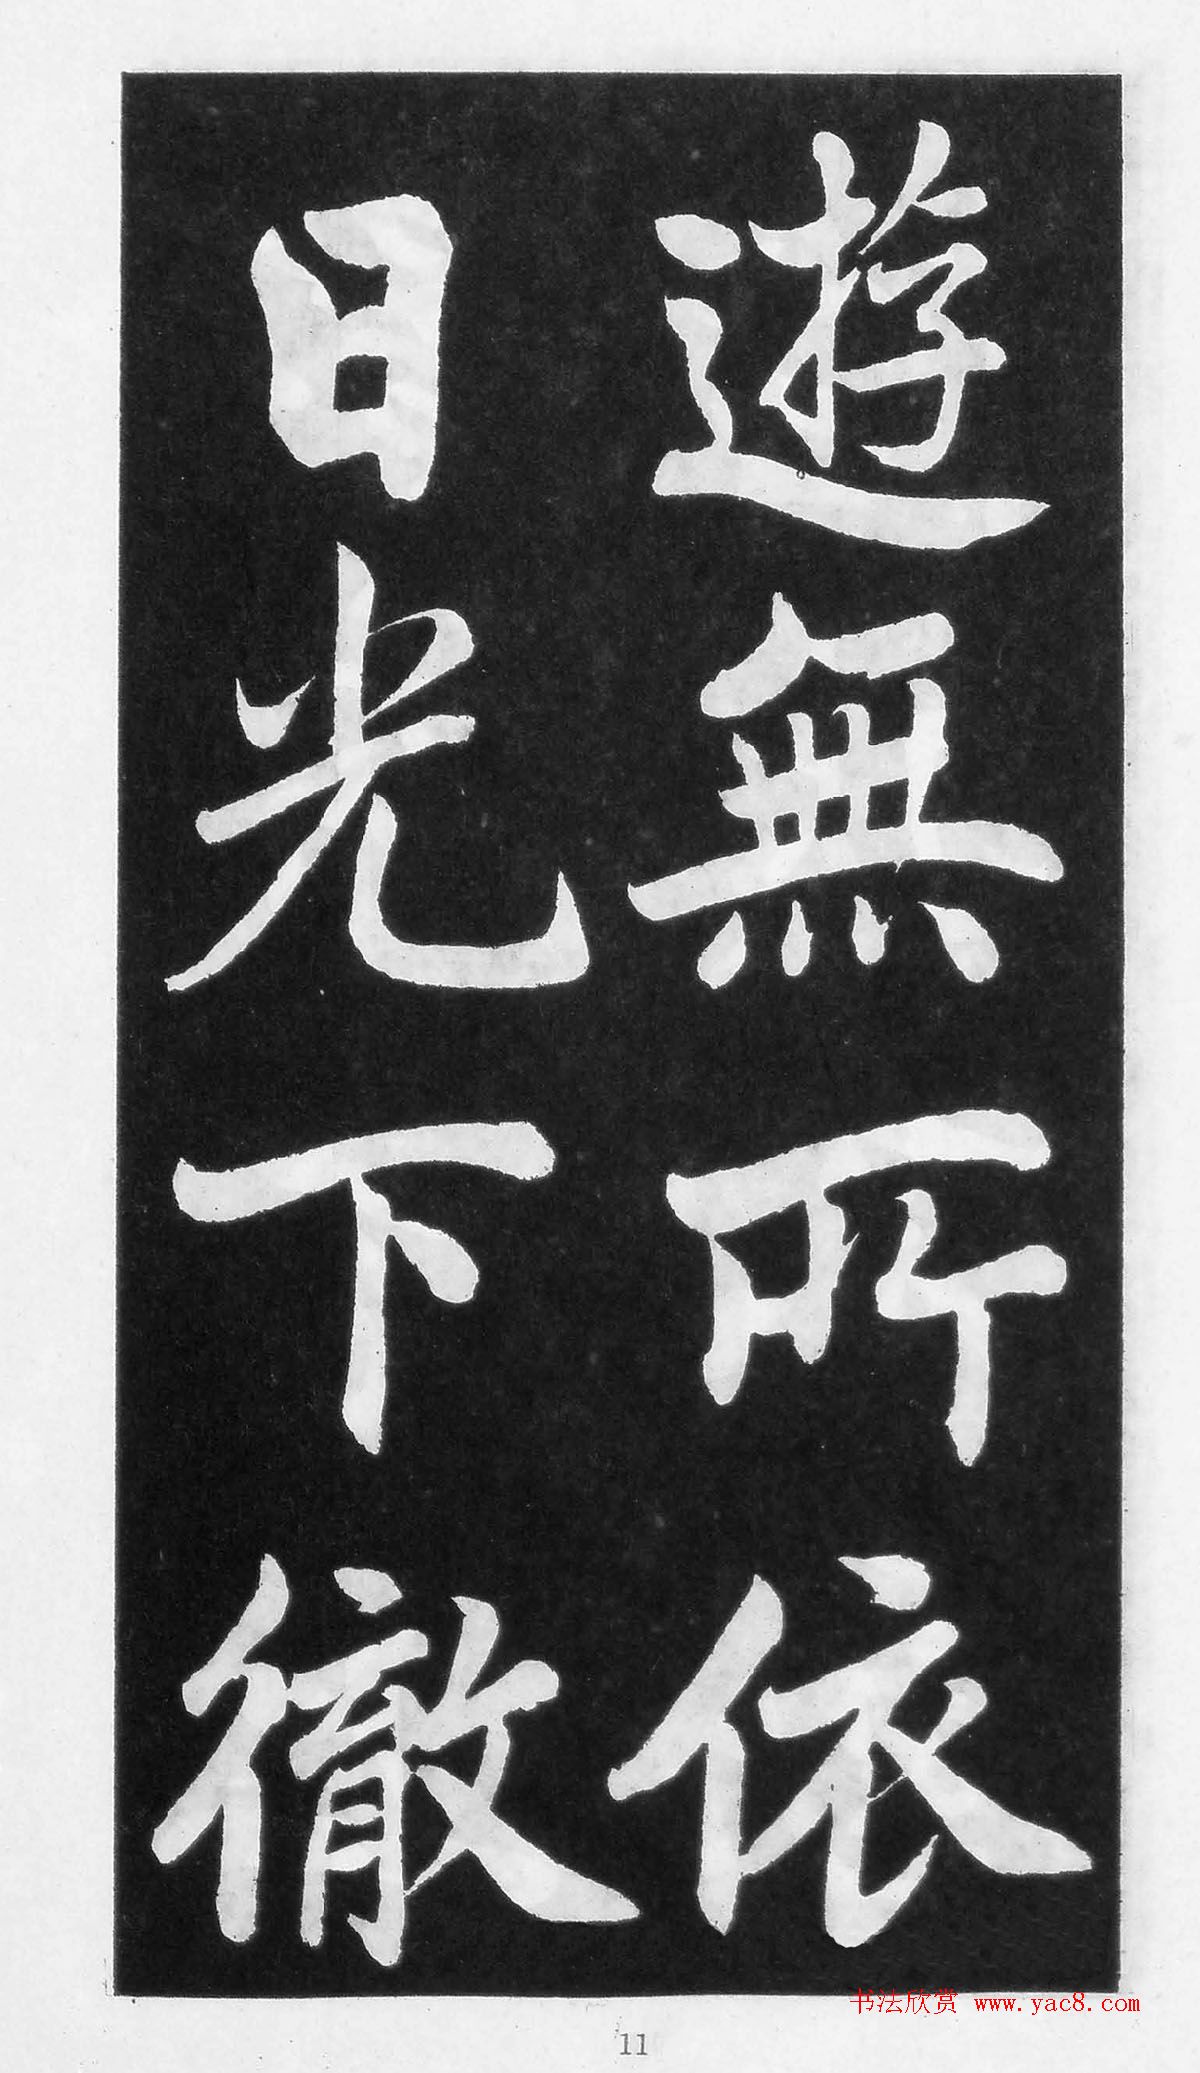 遊無所依
日光下徹
书法欣赏 www.yac8.com
11